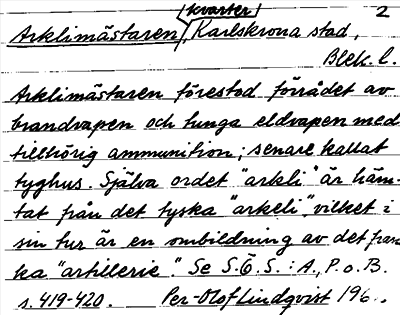 kvarter 2
Arklimästaren, Karlskrona stad,
Blek. l.
Arklimästaren förestod förrådet av
brandvapen och tunga eldvapen med
tillhörig ammunition; senare kallat
tyghus. Själva ordet "arkli" är häm-
tat från det tyska "arkeli", vilket i
sin tur är en ombildning av det fran
ka "artillerie". Se S.Ö.S.: A., P. o. B.
s. 419-420. Per-Olof Lindqvist 196..